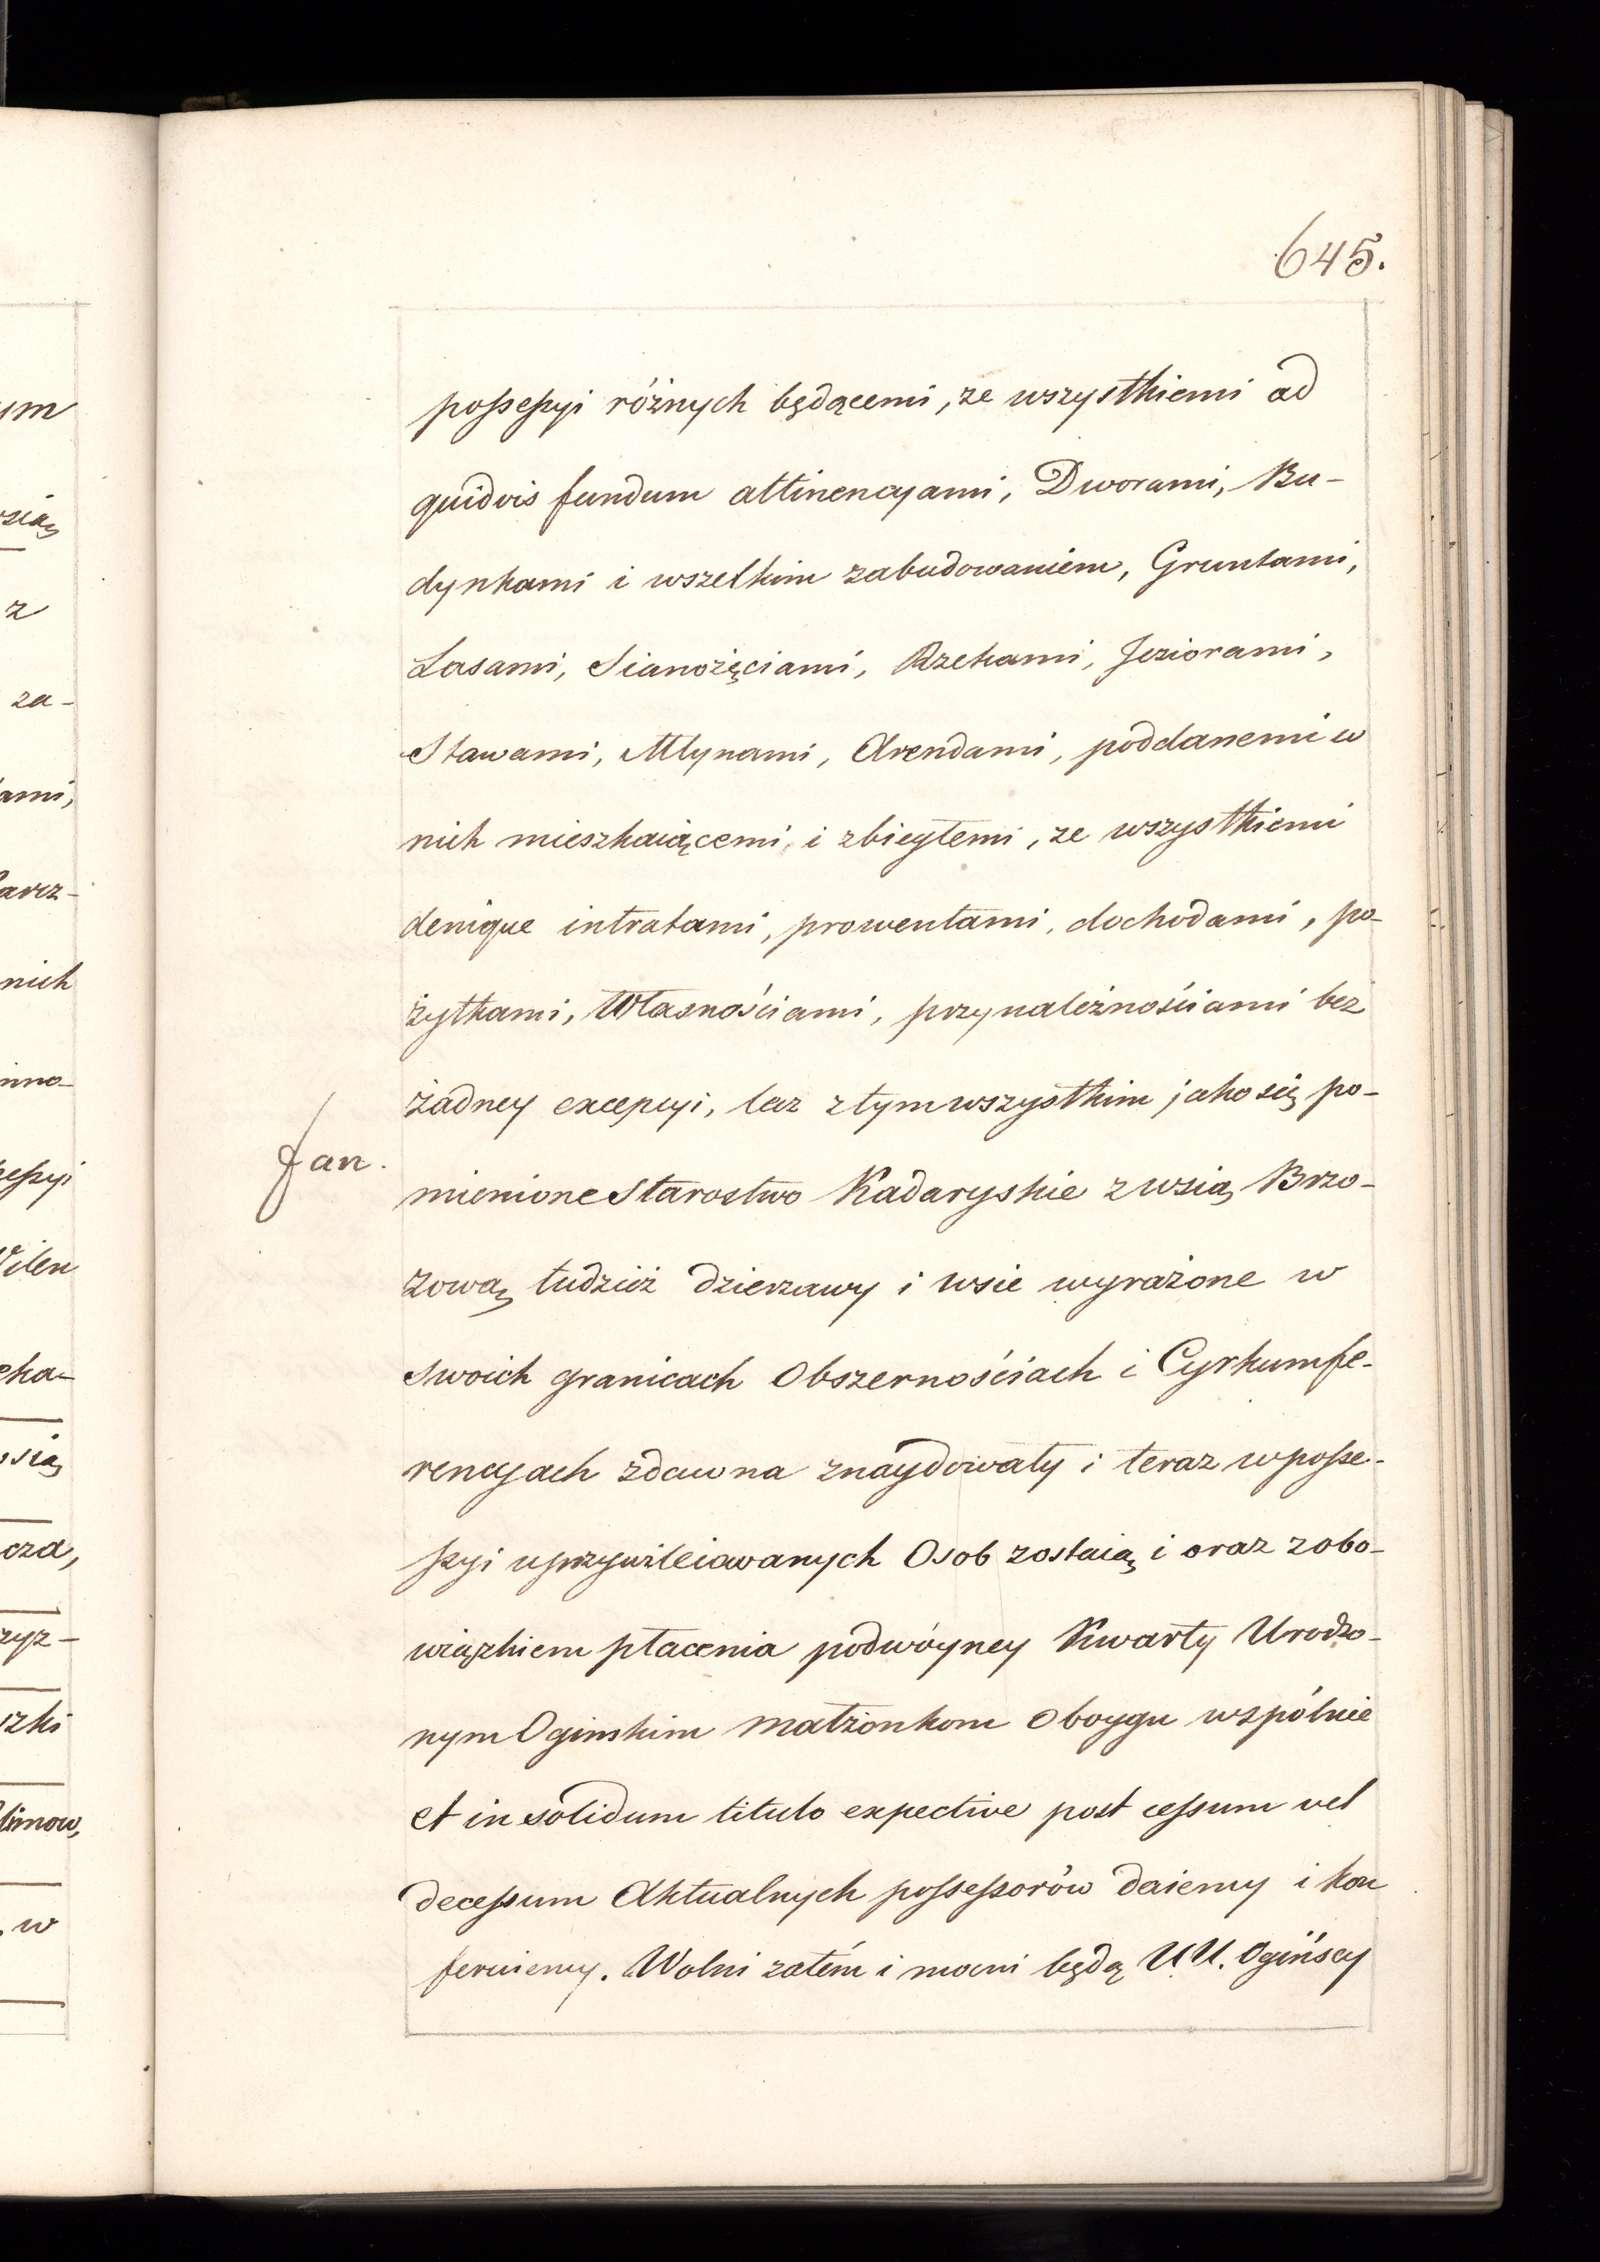 645.
possessyi różnych będącemi, ze wszystkiemi ad
quidvis fundum attinencyami, Dworami, Bu-
dynkami i wszelkim zabudowaniem, Gruntami,
Lasami, Sianożęciami, Rzekami, Jeziorami,
Stawami, Młynami, Arendami, poddanemi w
nich mieszkaiącemi, i zbiegłemi, ze wszystkiemi
denique intratami, prowentami, dochodami, po-
żytkami, Własnościami, przynależnościami bez
żadney excepcyi, lecz z tym wszystkim jako się po-
Jan.
mienione Starostwo Kadaryskie z wsią Brzo-
zową tudzież dzierzawy i wsie wyrażone w
swoich granicach Obszernościach i Cyrkumfe-
rencyach zdawna znaydowały i teraz w posse-
ssyi uprzywileiowanych Osob zostaią i oraz z obo-
wiązkiem płacenia podwóyney Kwarty Urodzo-
nym Oginskim małżonkom oboygu wspólnie
et in solidum titulo expective post cessum vel
decessum Aktualnych possessorów daiemy i kon
feruiemy. Wolni zatém i mocni będą UU. Ogińscy
ym
z
za-
ami,
arcz-
nich
nno-
Wilen
eka-
cza,
zyz-
zki
w